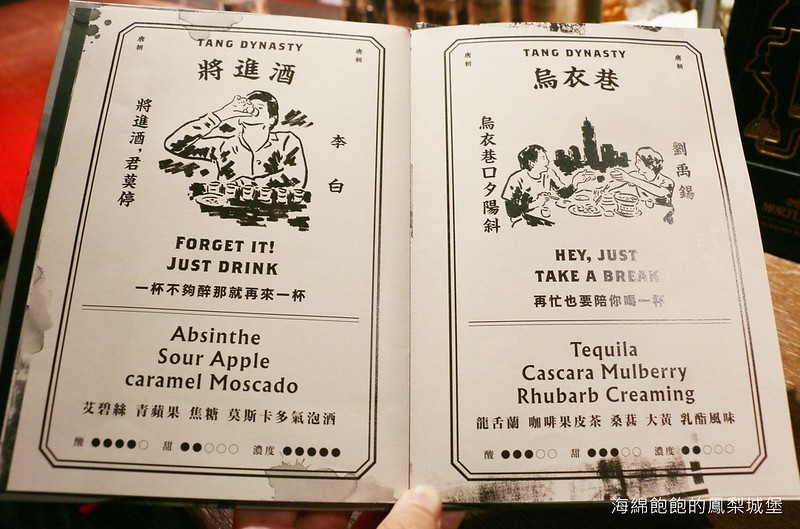 唐朝
TANG DYNASTY
唐朝
將進酒
將進酒，君莫停
李白
FORGET IT!
JUST DRINK
一杯不夠醉那就再來一杯
Absinthe
Sour Apple
caramel Moscado
艾碧絲 青蘋果 焦糖 莫斯卡多氣泡酒
酸 ●●●●○ 甜 ●●○○○ 濃度 ●●●●●
唐朝
TANG DYNASTY
唐朝
烏衣巷
烏衣巷口夕陽斜
劉禹錫
HEY, JUST
TAKE A BREAK
再忙也要陪你喝一杯
Tequila
Cascara Mulberry
Rhubarb Creaming
龍舌蘭 咖啡果皮茶 桑葚 大黃 乳酯風味
酸 ●●●○○ 甜 ●●●○○ 濃度 ●●○○○
海綿飽飽的鳳梨城堡